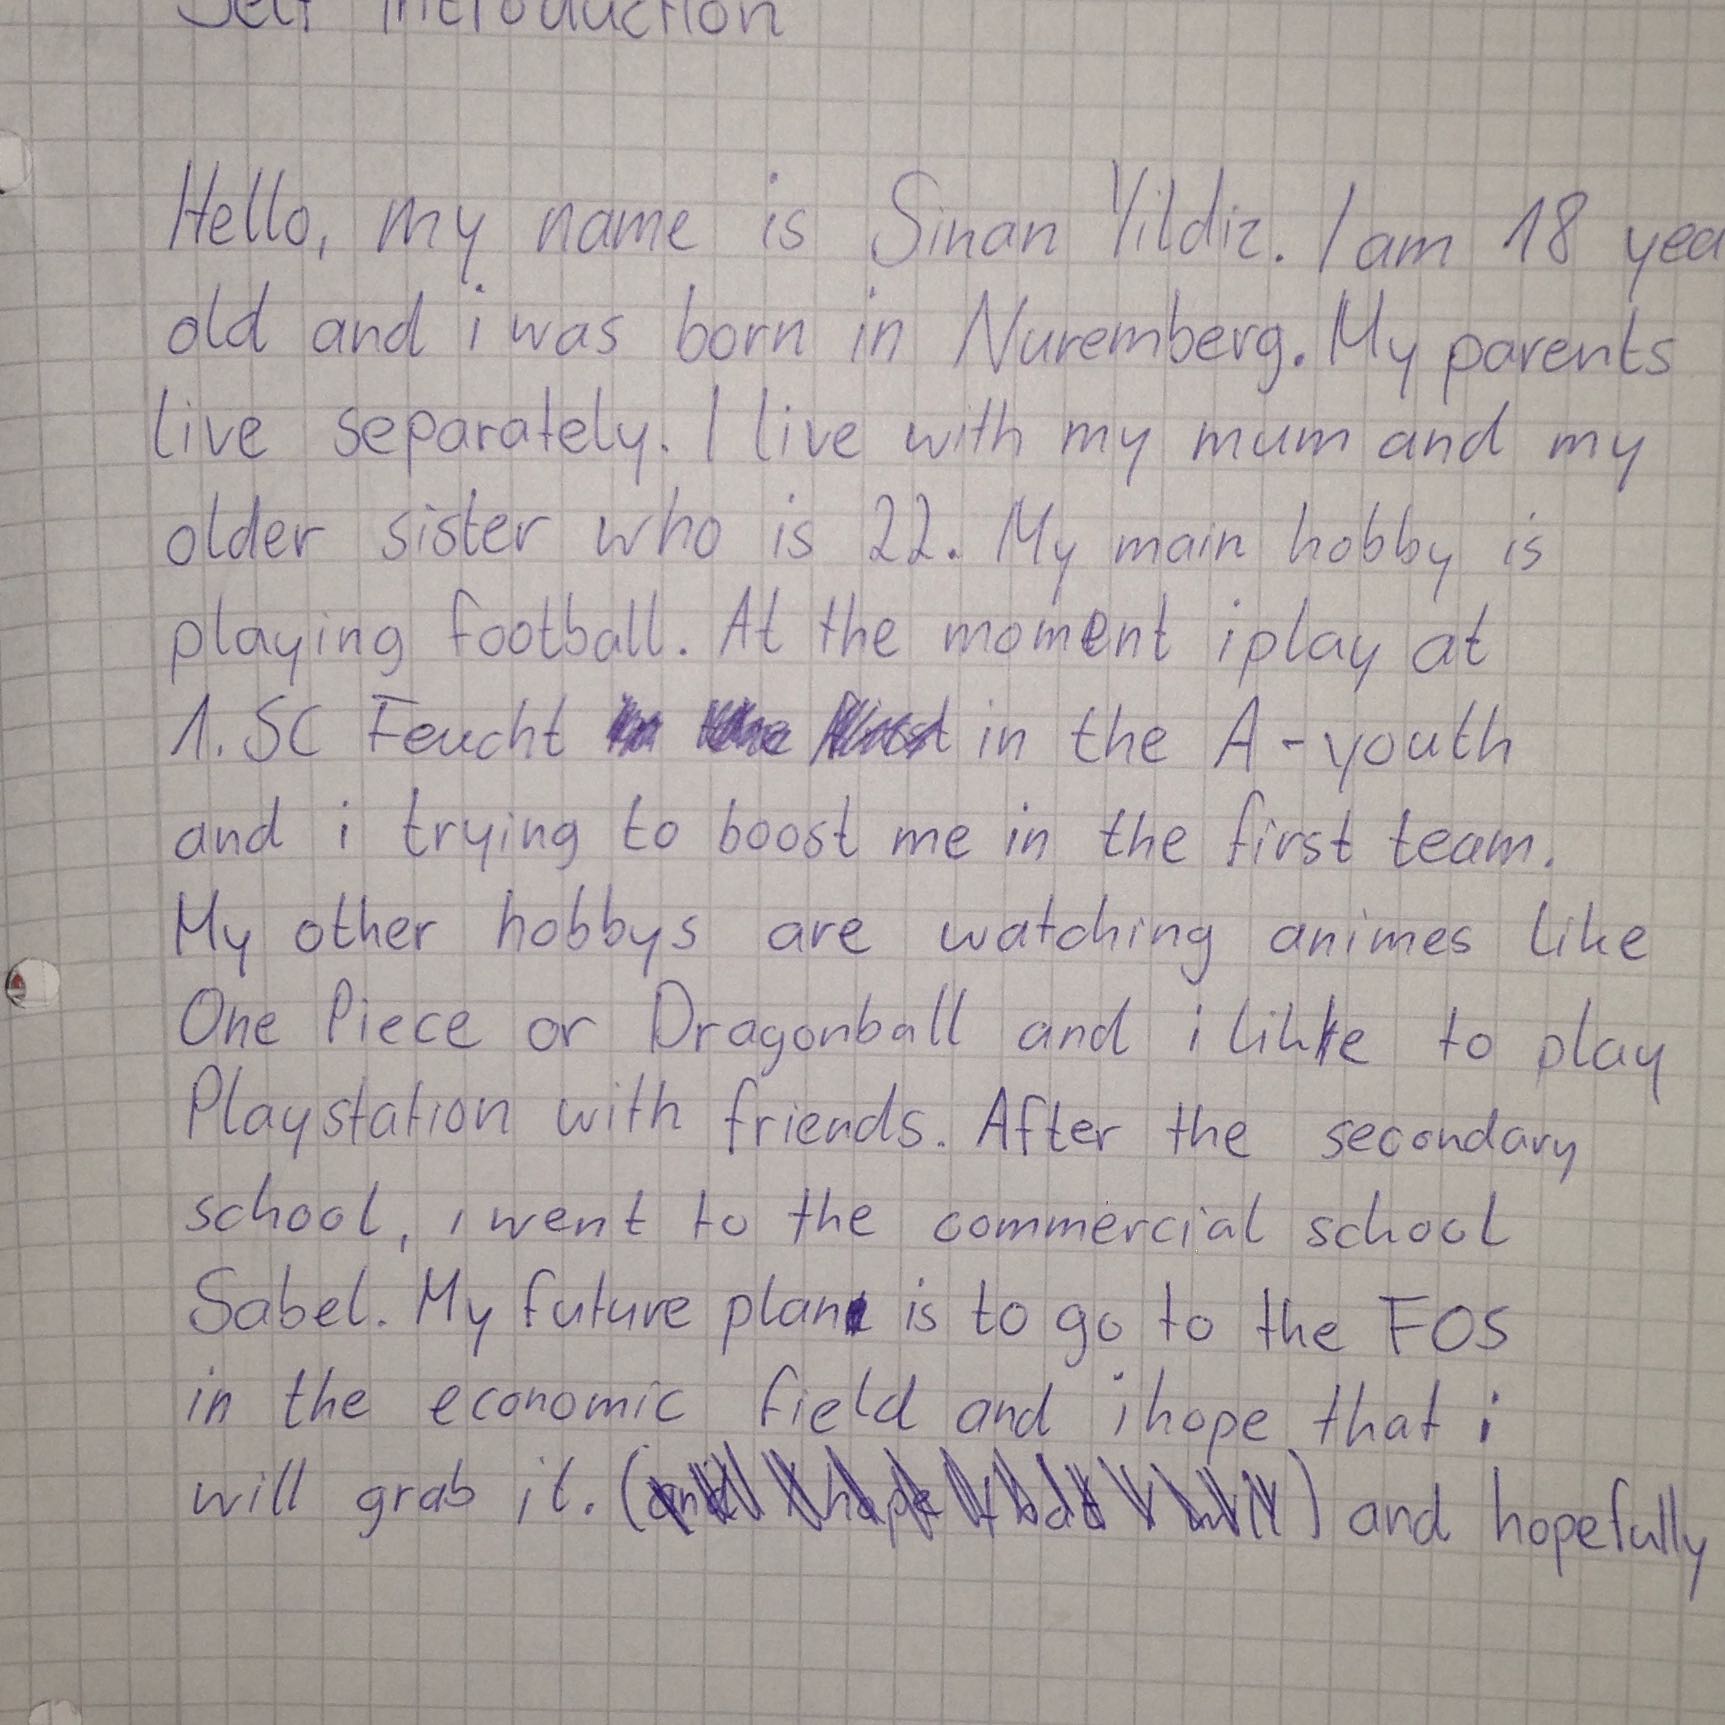 Self introduction
Hello, my name is Sinan Yildiz. I am 18 yea
old and i was born in Nuremberg. My parents
live separately. I live with my mum and my
older sister who is 22. My main hobby is
playing football. At the moment i play at
1. SC Feucht in the A-youth
and i trying to boost me in the first team.
My other hobbys are watching animes like
One Piece or Dragonball and i like to play
Playstation with friends. After the secondary
school, i went to the commercial school
Sabel. My future plan is to go to the FOS
in the economic field and i hope that i
will grab it. ( ) and hopefully